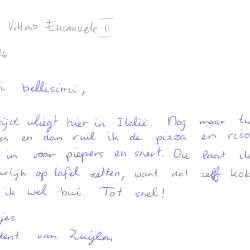 Vittorio Emanuele II
bellisimi,
vliegt hier in Italië. Nog maar
es en dan ruil ik de pizza en
in voor piepers en snert. Die laat ik
op tafel zetten, want dat zelf
ik wel bui. Tot snel!
van Zuijlen